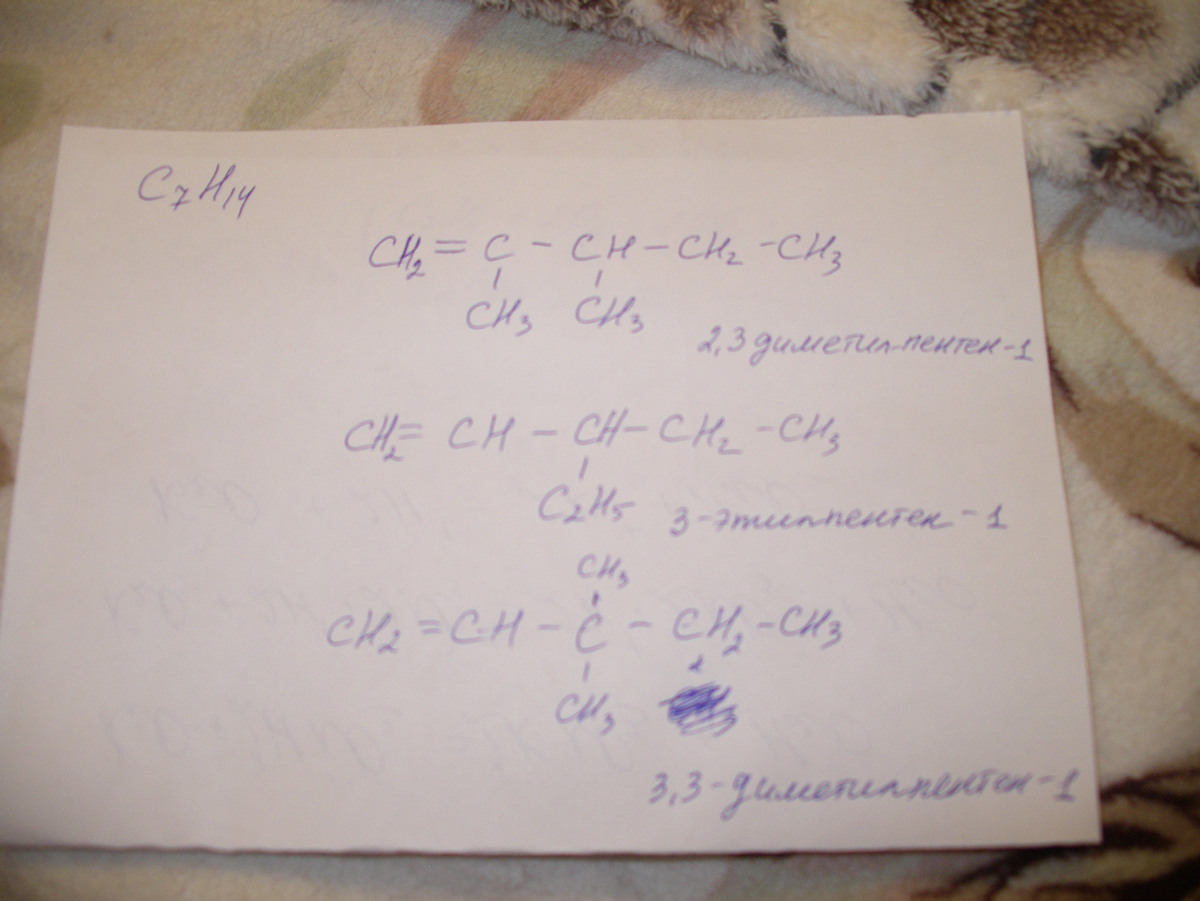 C₇H₁₄
CH₂ = C - CH - CH₂ - CH₃
CH₃ CH₃
2,3 диметилпентен-1
CH₂ = CH - CH - CH₂ - CH₃
C₂H₅ 3-этилпентен-1
CH₃
CH₂ = CH - C - CH₂ - CH₃
CH₃
3,3-диметилпентен-1